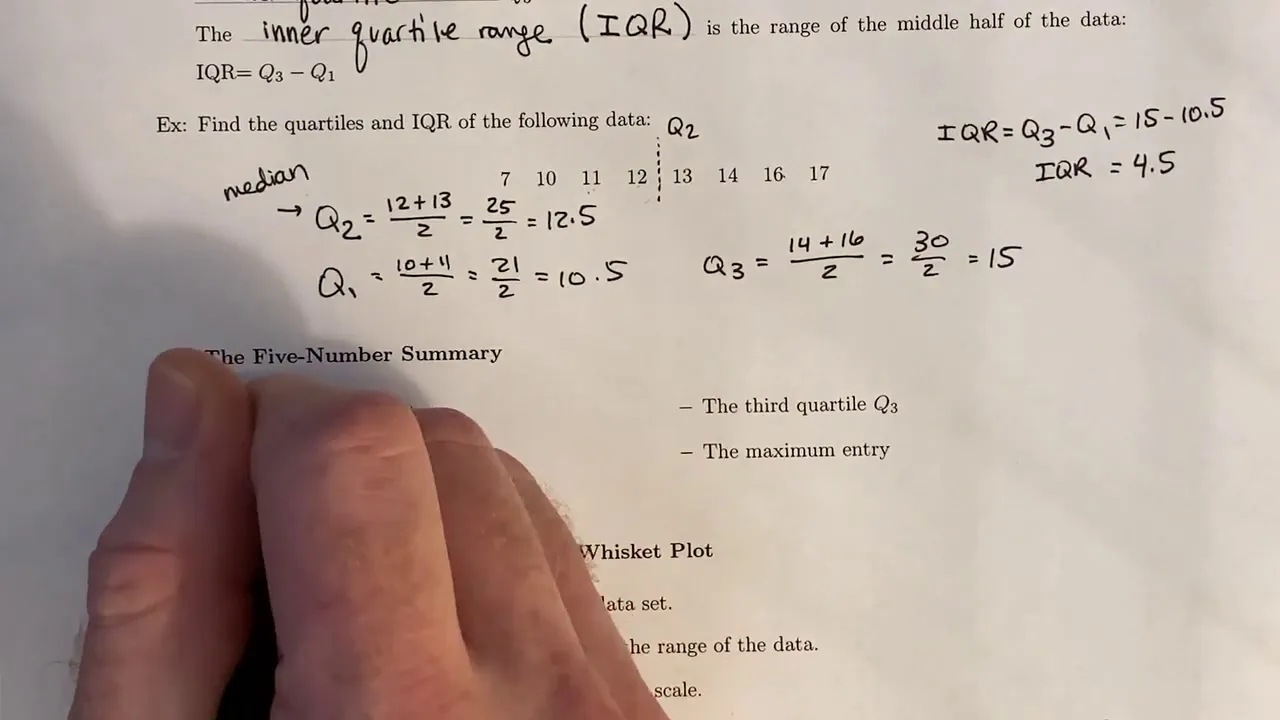 The inner quartile range (IQR) is the range of the middle half of the data:
IQR= Q3 − Q1
Ex: Find the quartiles and IQR of the following data:
Q2
IQR = Q3 - Q1 = 15 - 10.5
IQR = 4.5
7 10 11 12 13 14 16 17
median
→ Q2 = 12+13/2 = 25/2 = 12.5
Q1 = 10+11/2 = 21/2 = 10.5
Q3 = 14+16/2 = 30/2 = 15
The Five-Number Summary
– The third quartile Q3
– The maximum entry
Whisket Plot
data set.
the range of the data.
scale.